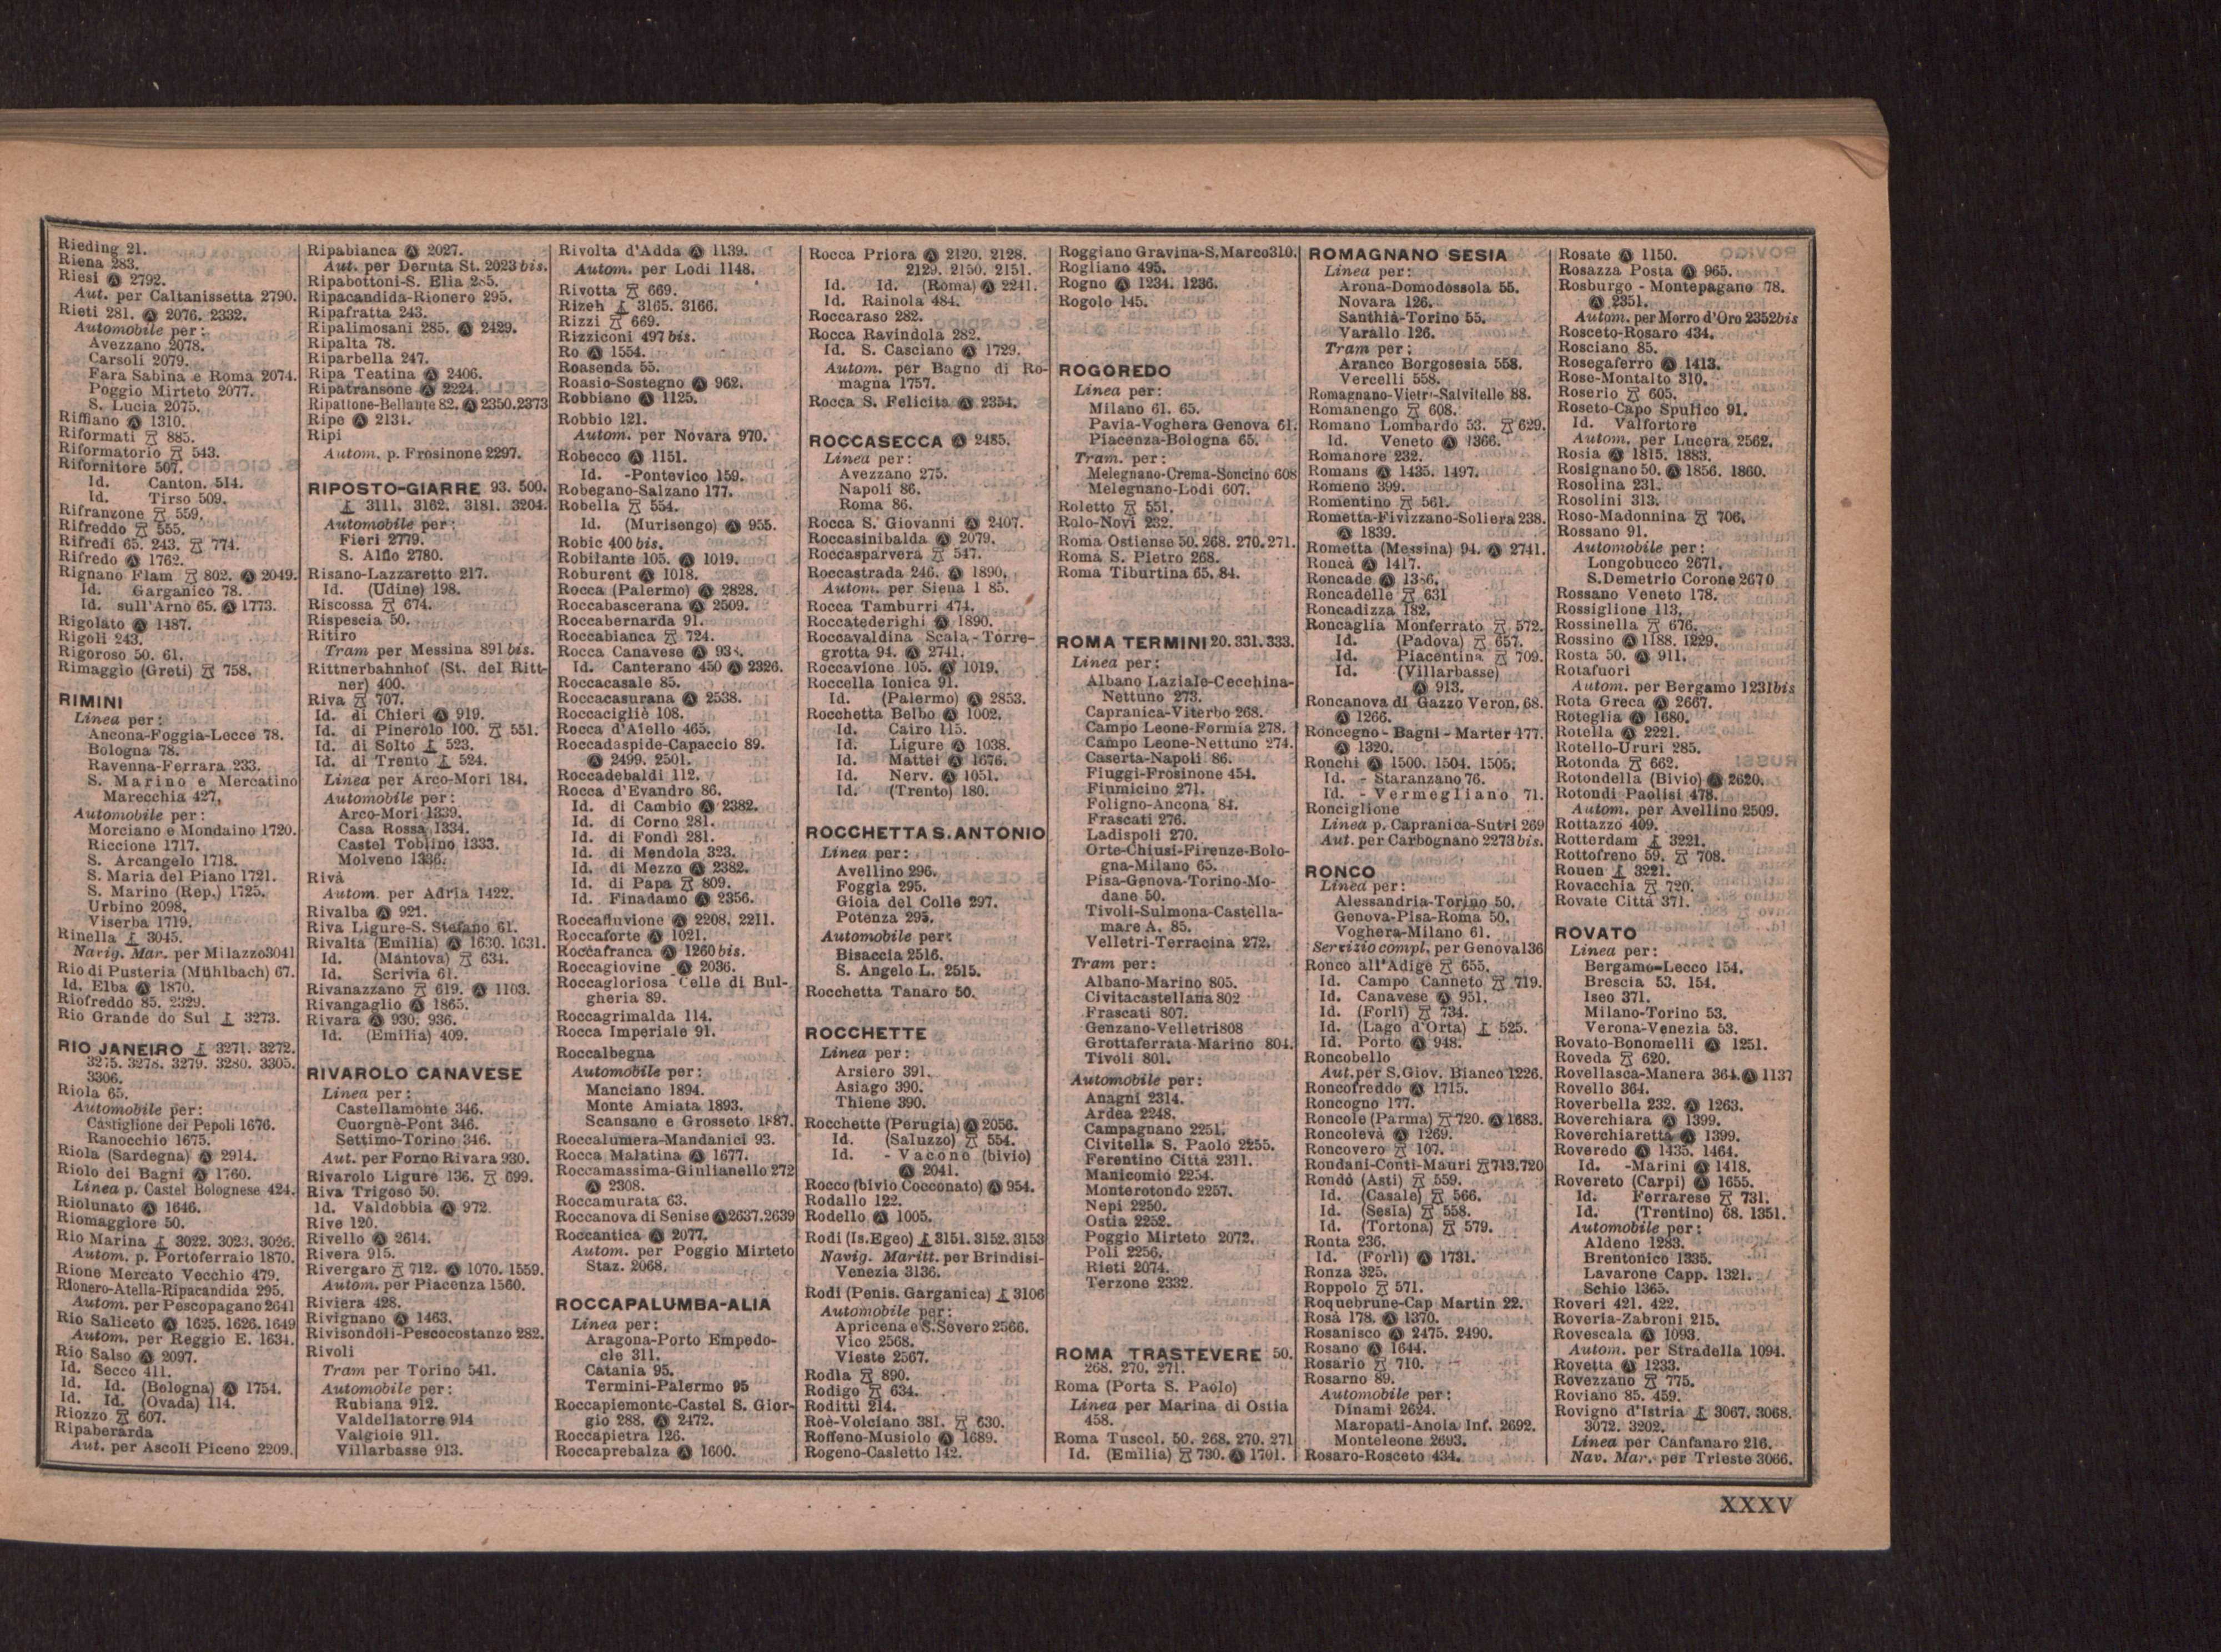 Rieding 21.
Riena 283.
Riesi Ⓐ 2792.
Aut. per Caltanissetta 2790.
Rieti 281. Ⓐ 2076. 2332.
Automobile per:
Avezzano 2078.
Carsoli 2079.
Fara Sabina e Roma 2074.
Poggio Mirteto 2077.
S. Lucia 2075.
Riffiano Ⓐ 1310.
Riformati 885.
Riformatorio 543.
Rifornitore 507.
Id. Canton. 514.
Id. Tirso 509.
Rifranzone 559.
Rifreddo 555.
Rifredi 65. 243. 774.
Rifredo Ⓐ 1762.
Rignano Flam 802. Ⓐ 2049.
Id. Garganico 78.
Id. sull'Arno 65. Ⓐ 1773.
Rigolato Ⓐ 1487.
Rigoli 243.
Rigoroso 50. 61.
Rimaggio (Greti) 758.
RIMINI
Linea per:
Ancona-Foggia-Lecce 78.
Bologna 78.
Ravenna-Ferrara 233.
S. Marino e Mercatino
Marecchia 427.
Automobile per:
Morciano e Mondaino 1720.
Riccione 1717.
S. Arcangelo 1718.
S. Maria del Piano 1721.
S. Marino (Rep.) 1725.
Urbino 2098.
Viserba 1719.
Rinella 3045.
Navig. Mar. per Milazzo 3041
Rio di Pusteria (Mühlbach) 67.
Id. Elba Ⓐ 1870.
Riofreddo 85. 2329.
Rio Grande do Sul 3273.
RIO JANEIRO 3271. 3272.
3275. 3278. 3279. 3280. 3305.
3306.
Riola 65.
Automobile per:
Castiglione dei Pepoli 1676.
Ranocchio 1675.
Riola (Sardegna) Ⓐ 2914.
Riolo dei Bagni Ⓐ 1760.
Linea p. Castel Bolognese 424.
Riolunato Ⓐ 1646.
Riomaggiore 50.
Rio Marina 3022. 3023. 3026.
Autom. p. Portoferraio 1870.
Rione Mercato Vecchio 479.
Rionero-Atella-Ripacandida 295.
Autom. per Pescopagano 2641
Rio Saliceto Ⓐ 1625. 1626. 1649
Autom. per Reggio E. 1634.
Rio Salso Ⓐ 2097.
Id. Secco 411.
Id. Id. (Bologna) Ⓐ 1754.
Id. Id. (Ovada) 114.
Riozzo 607.
Ripaberarda
Aut. per Ascoli Piceno 2209.
Ripabianca Ⓐ 2027.
Aut. per Deruta St. 2023 bis.
Ripabottoni-S. Elia 285.
Ripacandida-Rionero 295.
Ripafratta 243.
Ripalimosani 285. Ⓐ 2429.
Ripalta 78.
Riparbella 247.
Ripa Teatina Ⓐ 2406.
Ripatransone Ⓐ 2224.
Ripattone-Bellante 82. Ⓐ 2350.2373
Ripe Ⓐ 2131.
Ripi
Autom. p. Frosinone 2297.
RIPOSTO-GIARRE 93. 500.
3111. 3162. 3181. 3204.
Automobile per:
Fieri 2779.
S. Alfio 2780.
Risano-Lazzaretto 217.
Id. (Udine) 198.
Riscossa 674.
Rispescia 50.
Ritiro
Tram per Messina 891 bis.
Rittnerbahnhof (St. del Ritt-
ner) 400.
Riva 707.
Id. di Chieri Ⓐ 919.
Id. di Pinerolo 100. 551.
Id. di Solto 523.
Id. di Trento 524.
Linea per Arco-Mori 184.
Automobile per:
Arco-Mori 1339.
Casa Rossa 1334.
Castel Toblino 1333.
Molveno 1336.
Rivà
Autom. per Adria 1422.
Rivalba Ⓐ 921.
Riva Ligure-S. Stefano 61.
Rivalta (Emilia) Ⓐ 1630. 1631.
Id. (Mantova) 634.
Id. Scrivia 61.
Rivanazzano 619. Ⓐ 1103.
Rivangaglio Ⓐ 1865.
Rivara Ⓐ 930. 936.
Id. (Emilia) 409.
RIVAROLO CANAVESE
Linea per:
Castellamonte 346.
Cuorgnè-Pont 346.
Settimo-Torino 346.
Aut. per Forno Rivara 930.
Rivarolo Ligure 136. 699.
Riva Trigoso 50.
Id. Valdobbia Ⓐ 972.
Rive 120.
Rivello Ⓐ 2614.
Rivera 915.
Rivergaro 712. Ⓐ 1070. 1559.
Autom. per Piacenza 1560.
Riviera 428.
Rivignano Ⓐ 1463.
Rivisondoli-Pescocostanzo 282.
Rivoli
Tram per Torino 541.
Automobile per:
Rubiana 912.
Valdellatorre 914
Valgioie 911.
Villarbasse 913.
Rivolta d'Adda Ⓐ 1139.
Autom. per Lodi 1148.
Rivotta 669.
Rizeh 3165. 3166.
Rizzi 669.
Rizziconi 497 bis.
Ro Ⓐ 1554.
Roasenda 55.
Roasio-Sostegno Ⓐ 962.
Robbiano Ⓐ 1125.
Robbio 121.
Autom. per Novara 970.
Robecco Ⓐ 1151.
Id. -Pontevico 159.
Robegano-Salzano 177.
Robella 554.
Id. (Murisengo) Ⓐ 955.
Robic 400 bis.
Robilante 105. Ⓐ 1019.
Roburent Ⓐ 1018.
Rocca (Palermo) Ⓐ 2828.
Roccabascerana Ⓐ 2509.
Roccabernarda 91.
Roccabianca 724.
Rocca Canavese Ⓐ
Id. Canterano 450 Ⓐ 2326.
Roccacasale 85.
Roccacasurana Ⓐ 2538.
Roccacigliè 108.
Rocca d'Aiello 465.
Roccadaspide-Capaccio 89.
Ⓐ 2499. 2501.
Roccadebaldi 112.
Rocca d'Evandro 86.
Id. di Cambio Ⓐ 2382.
Id. di Corno 281.
Id. di Fondi 281.
Id. di Mendola 323.
Id. di Mezzo Ⓐ 2382.
Id. di Papa 809.
Id. Finadamo Ⓐ 2356.
Roccafluvione Ⓐ 2208. 2211.
Roccaforte Ⓐ 1021.
Roccafranca Ⓐ 1260 bis.
Roccagiovine Ⓐ 2036.
Roccagloriosa Celle di Bul-
gheria 89.
Roccagrimalda 114.
Rocca Imperiale 91.
Roccalbegna
Automobile per:
Manciano 1894.
Monte Amiata 1893.
Scansano e Grosseto 1887.
Roccalumera-Mandanici 93.
Rocca Malatina Ⓐ 1677.
Roccamassima-Giulianello 272
Ⓐ 2308.
Roccamurata 63.
Roccanova di Senise Ⓐ 2637.2639
Roccantica Ⓐ 2077.
Autom. per Poggio Mirteto
Staz. 2068.
ROCCAPALUMBA-ALIA
Linea per:
Aragona-Porto Empedo-
cle 311.
Catania 95.
Termini-Palermo 95
Roccapiemonte-Castel S. Gior-
gio 288. Ⓐ 2472.
Roccapietra 126.
Roccaprebalza Ⓐ 1600.
Rocca Priora Ⓐ 2120. 2128.
2129. 2150. 2151.
Id. Id. (Roma) Ⓐ 2241.
Id. Rainola 484.
Roccaraso 282.
Rocca Ravindola 282.
Id. S. Casciano Ⓐ 1729.
Autom. per Bagno di Ro-
magna 1757.
Rocca S. Felicita Ⓐ 2354.
ROCCASECCA Ⓐ 2485.
Linea per:
Avezzano 275.
Napoli 86.
Roma 86.
Rocca S. Giovanni Ⓐ 2407.
Roccasinibalda Ⓐ 2079.
Roccasparvera 547.
Roccastrada 246. Ⓐ 1890.
Autom. per Siena 1 85.
Rocca Tamburri 474.
Roccatederighi Ⓐ 1890.
Roccavaldina Scala-Torre-
grotta 94. Ⓐ 2741.
Roccavione 105. Ⓐ 1019.
Roccella Ionica 91.
Id. (Palermo) Ⓐ 2853.
Rocchetta Belbo Ⓐ 1002.
Id. Cairo 115.
Id. Ligure Ⓐ 1038.
Id. Mattei Ⓐ 1676.
Id. Nerv. Ⓐ 1051.
Id. (Trento) 180.
ROCCHETTA S. ANTONIO
Linea per:
Avellino 296.
Foggia 295.
Gioia del Colle 297.
Potenza 295.
Automobile per:
Bisaccia 2516.
S. Angelo L. 2515.
Rocchetta Tanaro 50.
ROCCHETTE
Linea per:
Arsiero 391.
Asiago 390.
Thiene 390.
Rocchette (Perugia) Ⓐ 2056.
Id. (Saluzzo) 554.
Id. - Vacone (bivio)
Ⓐ 2041.
Rocco (bivio Cocconato) Ⓐ 954.
Rodallo 122.
Rodello Ⓐ 1005.
Rodi (Is. Egeo) 3151. 3152. 3153
Navig. Maritt. per Brindisi-
Venezia 3136.
Rodi (Penis. Garganica) 3106
Automobile per:
Apricena e S. Severo 2566.
Vico 2568.
Vieste 2567.
Rodìa 890.
Rodigo 634.
Roditti 214.
Roè-Volciano 381. 630.
Roffeno-Musiolo Ⓐ 1689.
Rogeno-Casletto 142.
Roggiano Gravina-S. Marco 310.
Rogliano 495.
Rogno Ⓐ 1234. 1236.
Rogolo 145.
ROGOREDO
Linea per:
Milano 61. 65.
Pavia-Voghera Genova 61.
Piacenza-Bologna 65.
Tram. per:
Melegnano-Crema-Soncino 608
Melegnano-Lodi 607.
Roletto 551.
Rolo-Novi 232.
Roma Ostiense 50. 268. 270. 271.
Roma S. Pietro 268.
Roma Tiburtina 65. 84.
ROMA TERMINI 20. 331. 333.
Linea per:
Albano Laziale-Cecchina-
Nettuno 273.
Capranica-Viterbo 268.
Campo Leone-Formia 278.
Campo Leone-Nettuno 274.
Caserta-Napoli 86.
Fiuggi-Frosinone 454.
Fiumicino 271.
Foligno-Ancona 84.
Frascati 276.
Ladispoli 270.
Orte-Chiusi-Firenze-Bolo-
gna-Milano 65.
Pisa-Genova-Torino-Mo-
dane 50.
Tivoli-Sulmona-Castella-
mare A. 85.
Velletri-Terracina 272.
Tram per:
Albano-Marino 805.
Civitacastellana 802
Frascati 807.
Genzano-Velletri 808
Grottaferrata-Marino 804.
Tivoli 801.
Automobile per:
Anagni 2314.
Ardea 2248.
Campagnano 2251.
Civitella S. Paolo 2255.
Ferentino Città 2311.
Manicomio 2254.
Monterotondo 2257.
Nepi 2250.
Ostia 2252.
Poggio Mirteto 2072.
Poli 2256.
Rieti 2074.
Terzone 2332.
ROMA TRASTEVERE 50.
268. 270. 271.
Roma (Porta S. Paolo)
Linea per Marina di Ostia
458.
Roma Tuscol. 50. 268. 270. 271
Id. (Emilia) 730. Ⓐ 1701.
ROMAGNANO SESIA
Linea per:
Arona-Domodossola 55.
Novara 126.
Santhià-Torino 55.
Varallo 126.
Tram per:
Aranco Borgosesia 558.
Vercelli 558.
Romagnano-Vietri-Salvitelle 88.
Romanengo 608.
Romano Lombardo 53. 629.
Id. Veneto Ⓐ 1366.
Romanore 232.
Romans Ⓐ 1435. 1497.
Romeno 399.
Romentino 561.
Rometta-Fivizzano-Soliera 238.
Ⓐ 1839.
Rometta (Messina) 94. Ⓐ 2741.
Roncà Ⓐ 1417.
Roncade Ⓐ
Roncadelle 631
Roncadizza 182.
Roncaglia Monferrato 572.
Id. (Padova) 657.
Id. Piacentina 709.
Id. (Villarbasse)
Ⓐ 913.
Roncanova di Gazzo Veron. 68.
Ⓐ 1266.
Roncegno - Bagni - Marter 177.
Ⓐ 1320.
Ronchi Ⓐ 1500. 1504. 1505.
Id. - Staranzano 76.
Id. - Vermegliano 71.
Ronciglione
Linea p. Capranica-Sutri 269
Aut. per Carbognano 2273 bis.
RONCO
Linea per:
Alessandria-Torino 50.
Genova-Pisa-Roma 50.
Voghera-Milano 61.
Servizio compl. per Genova 136
Ronco all'Adige 655.
Id. Campo Canneto 719.
Id. Canavese Ⓐ 951.
Id. (Forlì) 734.
Id. (Lago d'Orta) 525.
Id. Porto Ⓐ 948.
Roncobello
Aut. per S. Giov. Bianco 1226.
Roncofreddo Ⓐ 1715.
Roncogno 177.
Roncole (Parma) 720. Ⓐ 1683.
Roncolevà Ⓐ 1269.
Roncovero 107.
Rondani-Conti-Mauri 713.720
Rondò (Asti) 559.
Id. (Casale) 566.
Id. (Sesia) 558.
Id. (Tortona) 579.
Ronta 236.
Id. (Forlì) Ⓐ 1731.
Ronza 325.
Roppolo 571.
Roquebrune-Cap Martin 22.
Rosà 178. Ⓐ 1370.
Rosanisco Ⓐ 2475. 2490.
Rosano Ⓐ 1644.
Rosario 710.
Rosarno 89.
Automobile per:
Dinami 2624.
Maropati-Anoia Inf. 2692.
Monteleone 2693.
Rosaro-Rosceto 434.
Rosate Ⓐ 1150.
Rosazza Posta Ⓐ 965.
Rosburgo - Montepagano 78.
Ⓐ 2351.
Autom. per Morro d'Oro 2352 bis
Rosceto-Rosaro 434.
Rosciano 85.
Rosegaferro Ⓐ 1413.
Rose-Montalto 310.
Roserio 605.
Roseto-Capo Spulico 91.
Id. Valfortore
Autom. per Lucera 2562.
Rosia Ⓐ 1815. 1883.
Rosignano 50. Ⓐ 1856. 1860.
Rosolina 231.
Rosolini 313.
Roso-Madonnina 706.
Rossano 91.
Automobile per:
Longobucco 2671.
S. Demetrio Corone 2670
Rossano Veneto 178.
Rossiglione 113.
Rossinella 676.
Rossino Ⓐ 1188. 1229.
Rosta 50. Ⓐ 911.
Rotafuori
Autom. per Bergamo 1231 bis
Rota Greca Ⓐ 2667.
Roteglia Ⓐ 1680.
Rotella Ⓐ 2221.
Rotello-Ururi 285.
Rotonda 662.
Rotondella (Bivio) Ⓐ 2620.
Rotondi Paolisi 478.
Autom. per Avellino 2509.
Rottazzo 409.
Rotterdam 3221.
Rottofreno 59. 708.
Rouen 3221.
Rovacchia 720.
Rovate Città 371.
ROVATO
Linea per:
Bergamo-Lecco 154.
Brescia 53. 154.
Iseo 371.
Milano-Torino 53.
Verona-Venezia 53.
Rovato-Bonomelli Ⓐ 1251.
Roveda 620.
Rovellasca-Manera 364. Ⓐ 1137
Rovello 364.
Roverbella 232. Ⓐ 1263.
Roverchiara Ⓐ 1399.
Roverchiaretta Ⓐ 1399.
Roveredo Ⓐ 1435. 1464.
Id. -Marini Ⓐ 1418.
Rovereto (Carpi) Ⓐ 1655.
Id. Ferrarese 731.
Id. (Trentino) 68. 1351.
Automobile per:
Aldeno 1283.
Brentonico 1335.
Lavarone Capp. 1321.
Schio 1365.
Roveri 421. 422.
Roveria-Zabroni 215.
Rovescala Ⓐ 1093.
Autom. per Stradella 1094.
Rovetta Ⓐ 1233.
Rovezzano 775.
Roviano 85. 459.
Rovigno d'Istria 3067. 3068.
3072. 3202.
Linea per Canfanaro 216.
Nav. Mar. per Trieste 3066.
XXXV